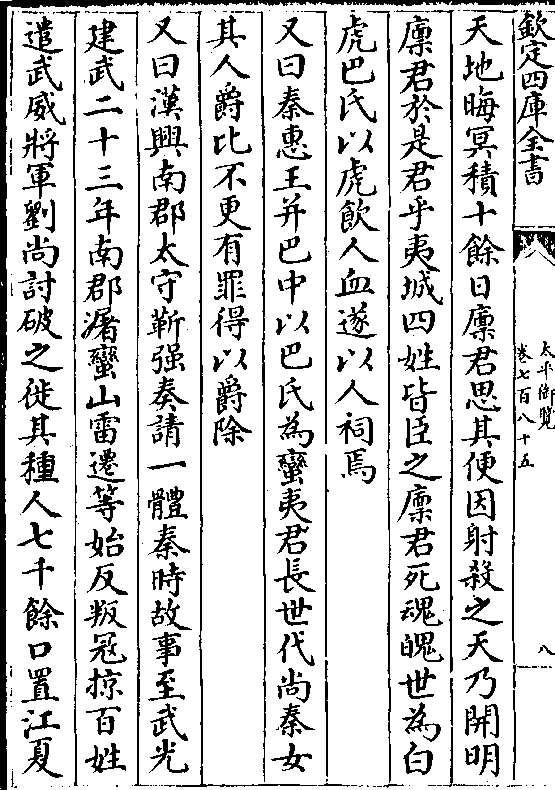 欽定四庫全書
太平御覽
卷七百八十五
八
天地晦冥積十餘日廪君思其便因射殺之天乃開明
廪君於是君乎夷城四姓皆臣之廪君死魂魄世為白
虎巴氏以虎飲人血遂以人祠焉
又曰秦惠王并巴中以巴氏為蠻夷君長世代尚秦女
其人爵比不更有罪得以爵除
又曰漢興南郡太守靳强奏請一體秦時故事至武光
建武二十三年南郡潳蠻山雷遷等始反叛冦掠百姓
遣武威將軍劉尚討破之徙其種人七千餘口置江夏